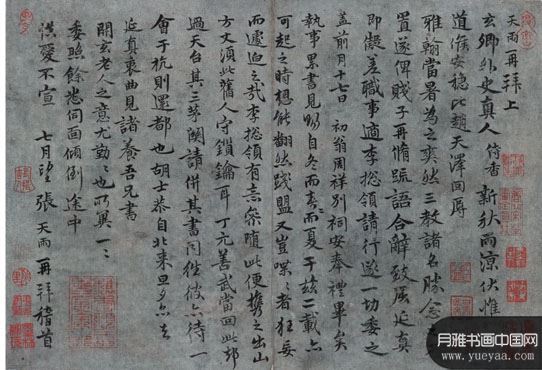 天雨再拜上
玄卿外史真人 侍香 新秋雨涼伏惟
道候安穩比趙天澤回辱
雅翰當暑為之奕然三教諸名勝念
置遂俾賤子再脩疏語合辭致屈延真
即擬差職事適李総領請行遂一切委之
蓋前月十七日 初翁周祥別祠安奉禮畢矣
執事累書見賜自冬而春而夏于茲二載亦
可起之時想能翻然踐盟又豈喋喋者狂妄
而遽迫之哉李総領有志祭隨此便攜之出山
方丈須此舊人守鎖鑰耳丁元善武當回此邦
過天台其三茅闕請併其書同往彼亦待一
會于杭則還都也胡士恭自北來旦夕亦去
延真衷曲見諸養吾兄書
開玄老人之意尤勤勤也所冀一一
委照餘悉伺面傾倒 途中
洪愛不宣 七月 張天雨再拜稽首
月雅书画中国网
www.yueyaa.com